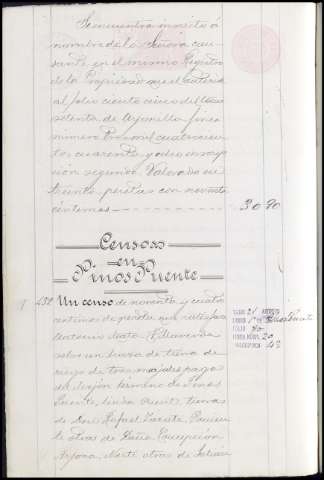 Se encuentra inscrito á
nombre de la Señora cau-
sante en el mismo Registro
de la Propiedad que el anterior
al folio ciento cinco del tomo
setenta de finca
número tres mil cuatrocien-
tos cuarenta y ocho inscrip-
ción segunda. Valorado en
treinta pesetas con noventa
céntimos 30 90
Censos
en
Pinos Puente
432 Un censo de noventa y cuatro
céntimos de
sobre un haza de tierra de
riego de tres marjales pago
término de Pinos
Puente, linda Oriente tierras
de Don Rafael Zarate, Ponien-
te otras de Doña Concepción
Arjona, Norte otras de
TOMO 21
LIBRO 1º Pinos Puente
FOLIO 80
FINCA NÚM. 20
INSCRIPCIÓN 43